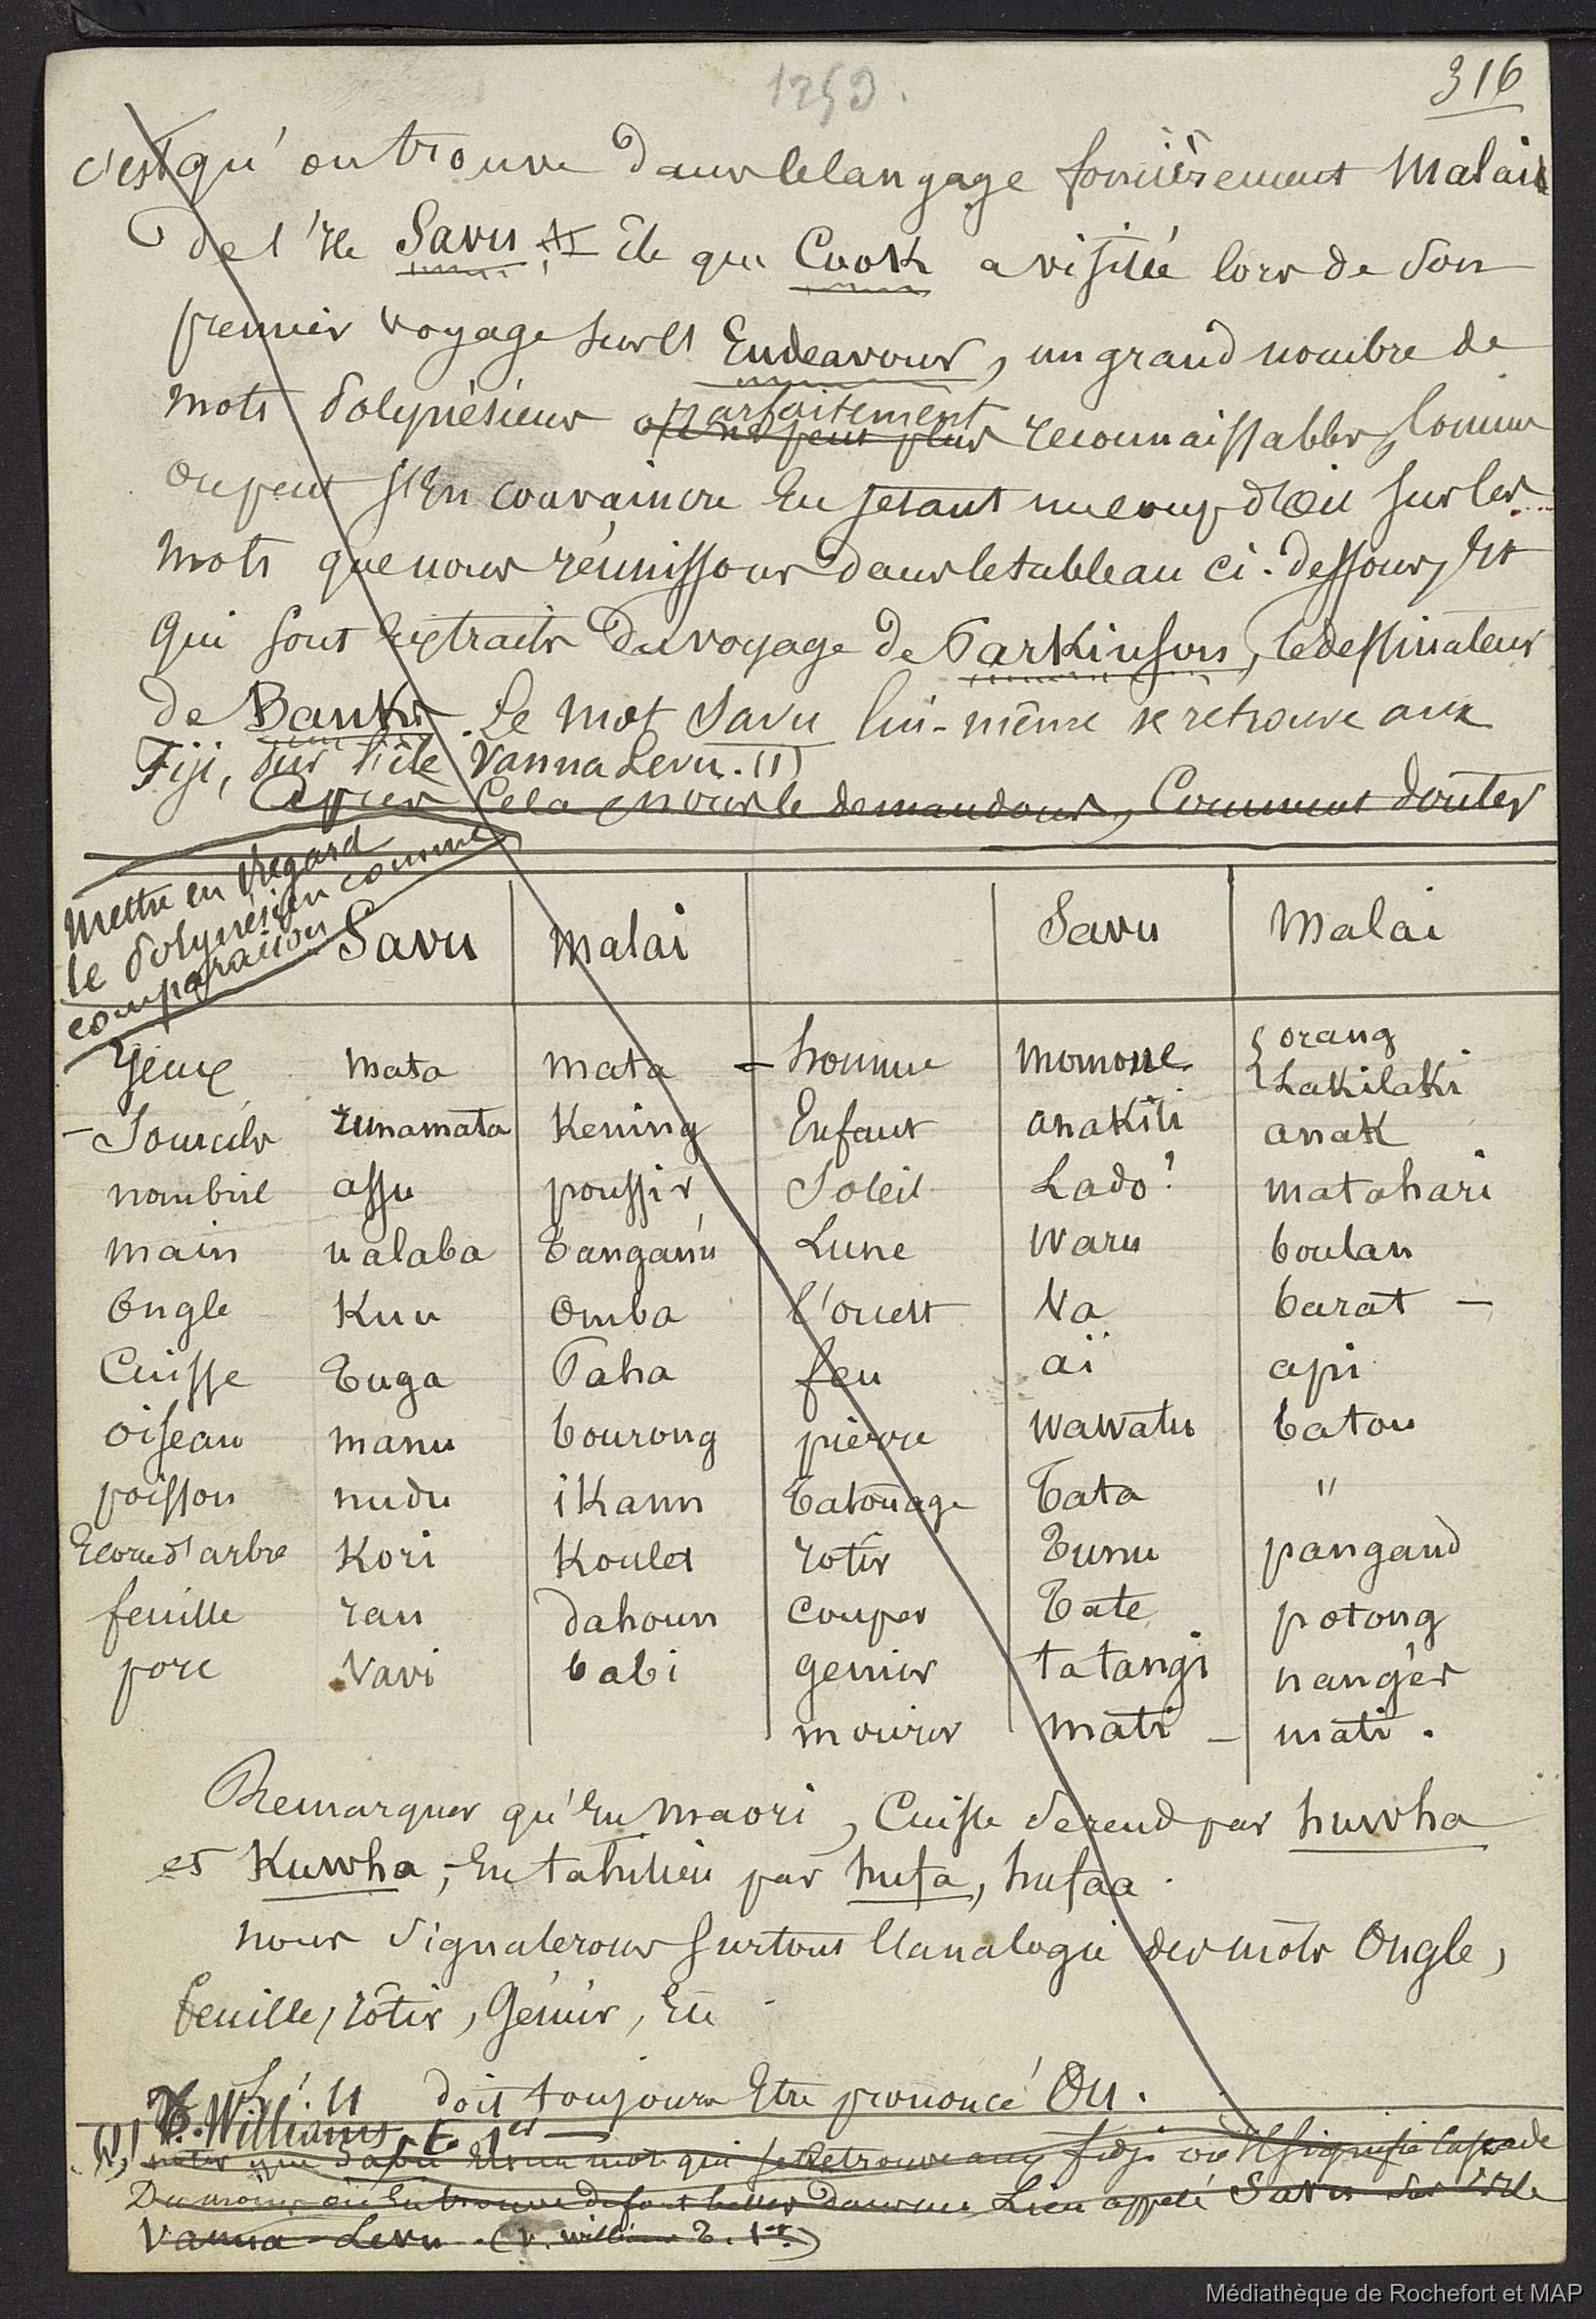 1253.
316
c'est qu'on trouve dans le langage foncièrement Malai
de l'Ile Savu île que Cook a visitée lors de son
premier voyage sur l' Endeavour, un grand nombre de
mots Polynésiens parfaitement reconnaissables, comme
on peut s'en convaincre en jetant un coup d'œil sur les
mots que nous réunissons dans le tableau ci-dessous, et
qui sont extraits du voyage de Parkinson, le dessinateur
de Banks. Le mot Savu lui-même se retrouve aux
Fiji, sur l'île Vanna Levu. (1)
Après cela, nous le demandons, Comment douter
Mettre en regard
le Polynésien comme
comparaison
Savu malai Savu Malai
Yeux mata mata – homme momone { orang
Lakilaki
– Sourcils runamata Kening Enfant anakiti anak
nombril assu poussir Soleil Lado? matahari
main ualaba tanganu Lune Waru boulan
Ongle Kuu Omba l'ouest Va barat –
Cuisse tuga Paha feu aï api
oiseau manu bourong pierre wawatu batou
poisson nudu iKann tatouage tata "
Ecorce d'arbre Kori Koulet rotir tunu pangand
feuille rau dahoun couper tate potong
porc Vavi babi gemir tatangi nangèr
mourir mati – mati.
Remarquer qu'en maori, Cuisse se rend par huwha
et Kuwha, en tahitien par hufa, hufaa.
nous signalerons surtout l'analogie des mots Ongle,
feuille, rôtir, Gémir, Etc
L'U doit toujours être prononcé Ou.
(1) V. Williams. t. 1er —
noter que Savu est un mot qui se retrouve aux fidji où il signifie cascade
Du moins on en trouve de fort belles dans un Lieu appelé Savu sur l'Ile
Vanna-Levu. (V. Williams t. 1er)
Médiathèque de Rochefort et MAP